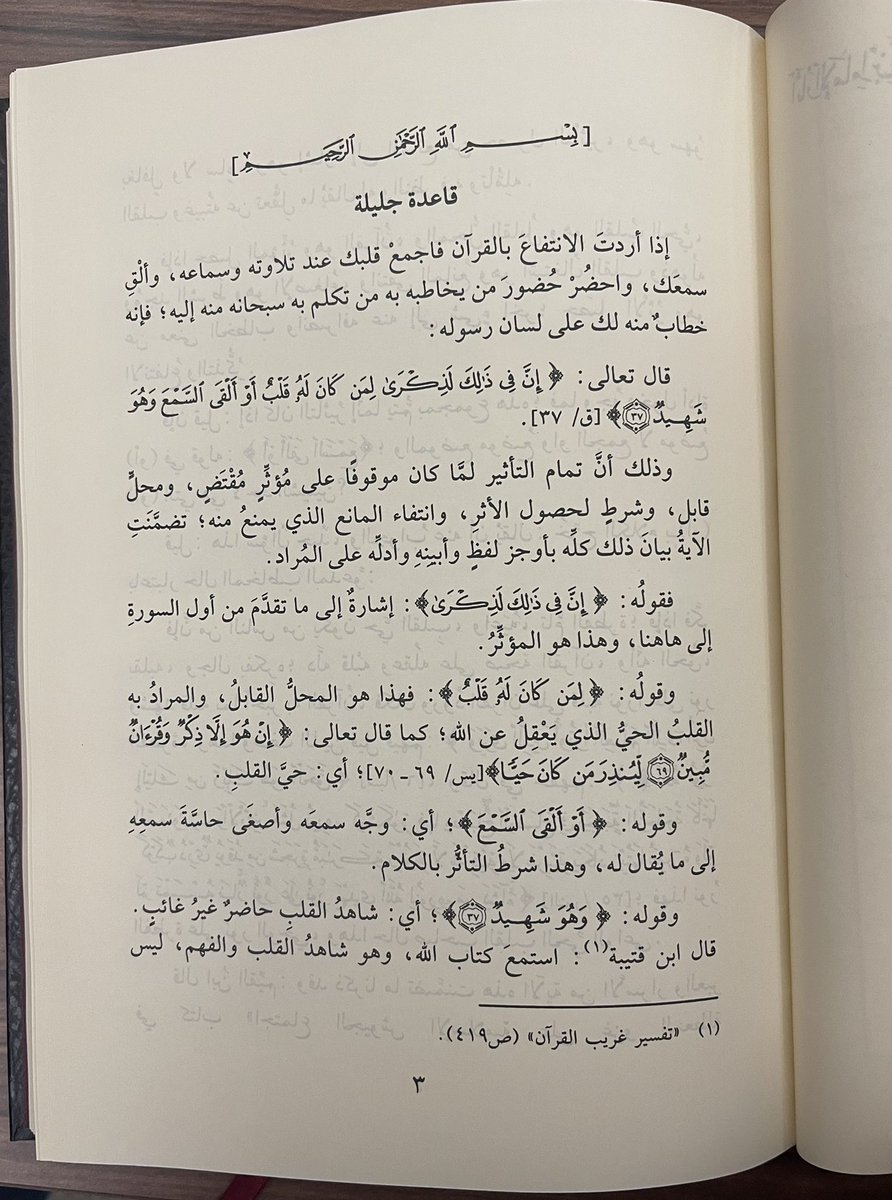 [بِسْمِ ٱللَّهِ ٱلرَّحْمَٰنِ ٱلرَّحِيمِ]
قاعدة جليلة
إذا أردتَ الانتفاعَ بالقرآن فاجمعْ قلبك عند تلاوته وسماعه، وألْقِ
سمعَك، واحضُرْ حُضورَ من يخاطبه به من تكلم به سبحانه منه إليه؛ فإنه
خطابٌ منه لك على لسان رسوله:
قال تعالى: ﴿ إِنَّ فِى ذَٰلِكَ لَذِكْرَىٰ لِمَن كَانَ لَهُۥ قَلْبٌ أَوْ أَلْقَى ٱلسَّمْعَ وَهُوَ
شَهِيدٌ ٣٧﴾ [ق/ ٣٧].
وذلك أنَّ تمام التأثير لمَّا كان موقوفًا على مُؤثِّرٍ مُقْتَضٍ، ومحلٍّ
قابل، وشرطٍ لحصول الأثرِ، وانتفاء المانع الذي يمنعُ منه؛ تضمَّنَتِ
الآيةُ بيانَ ذلك كلِّه بأوجز لفظٍ وأبينِهِ وأدلِّه على المُراد.
فقولُه: ﴿ إِنَّ فِى ذَٰلِكَ لَذِكْرَىٰ﴾: إشارةٌ إلى ما تقدَّمَ من أول السورةِ
إلى هاهنا، وهذا هو المؤثِّرُ.
وقولُه: ﴿ لِمَن كَانَ لَهُۥ قَلْبٌ ﴾: فهذا هو المحلُّ القابلُ، والمرادُ به
القلبُ الحيُّ الذي يَعْقِلُ عن الله؛ كما قال تعالى: ﴿ إِنْ هُوَ إِلَّا ذِكْرٌ وَقُرْءَانٌ
مُّبِينٌ ٦٩ لِّيُنذِرَ مَن كَانَ حَيًّا﴾[يس/ ٦٩ ـ ٧٠]؛ أي: حيَّ القلبِ.
وقوله: ﴿ أَوْ أَلْقَى ٱلسَّمْعَ ﴾؛ أي: وجَّه سمعَه وأصغَى حاسَّةَ سمعِهِ
إلى ما يُقال له، وهذا شرطُ التأثُّر بالكلام.
وقوله: ﴿ وَهُوَ شَهِيدٌ ٣٧﴾؛ أي: شاهدُ القلبِ حاضرٌ غيرُ غائبٍ.
قال ابن قتيبة(١): استمعَ كتاب الله، وهو شاهدُ القلب والفهم، ليس
(١) «تفسير غريب القرآن» (ص٤١٩).
٣